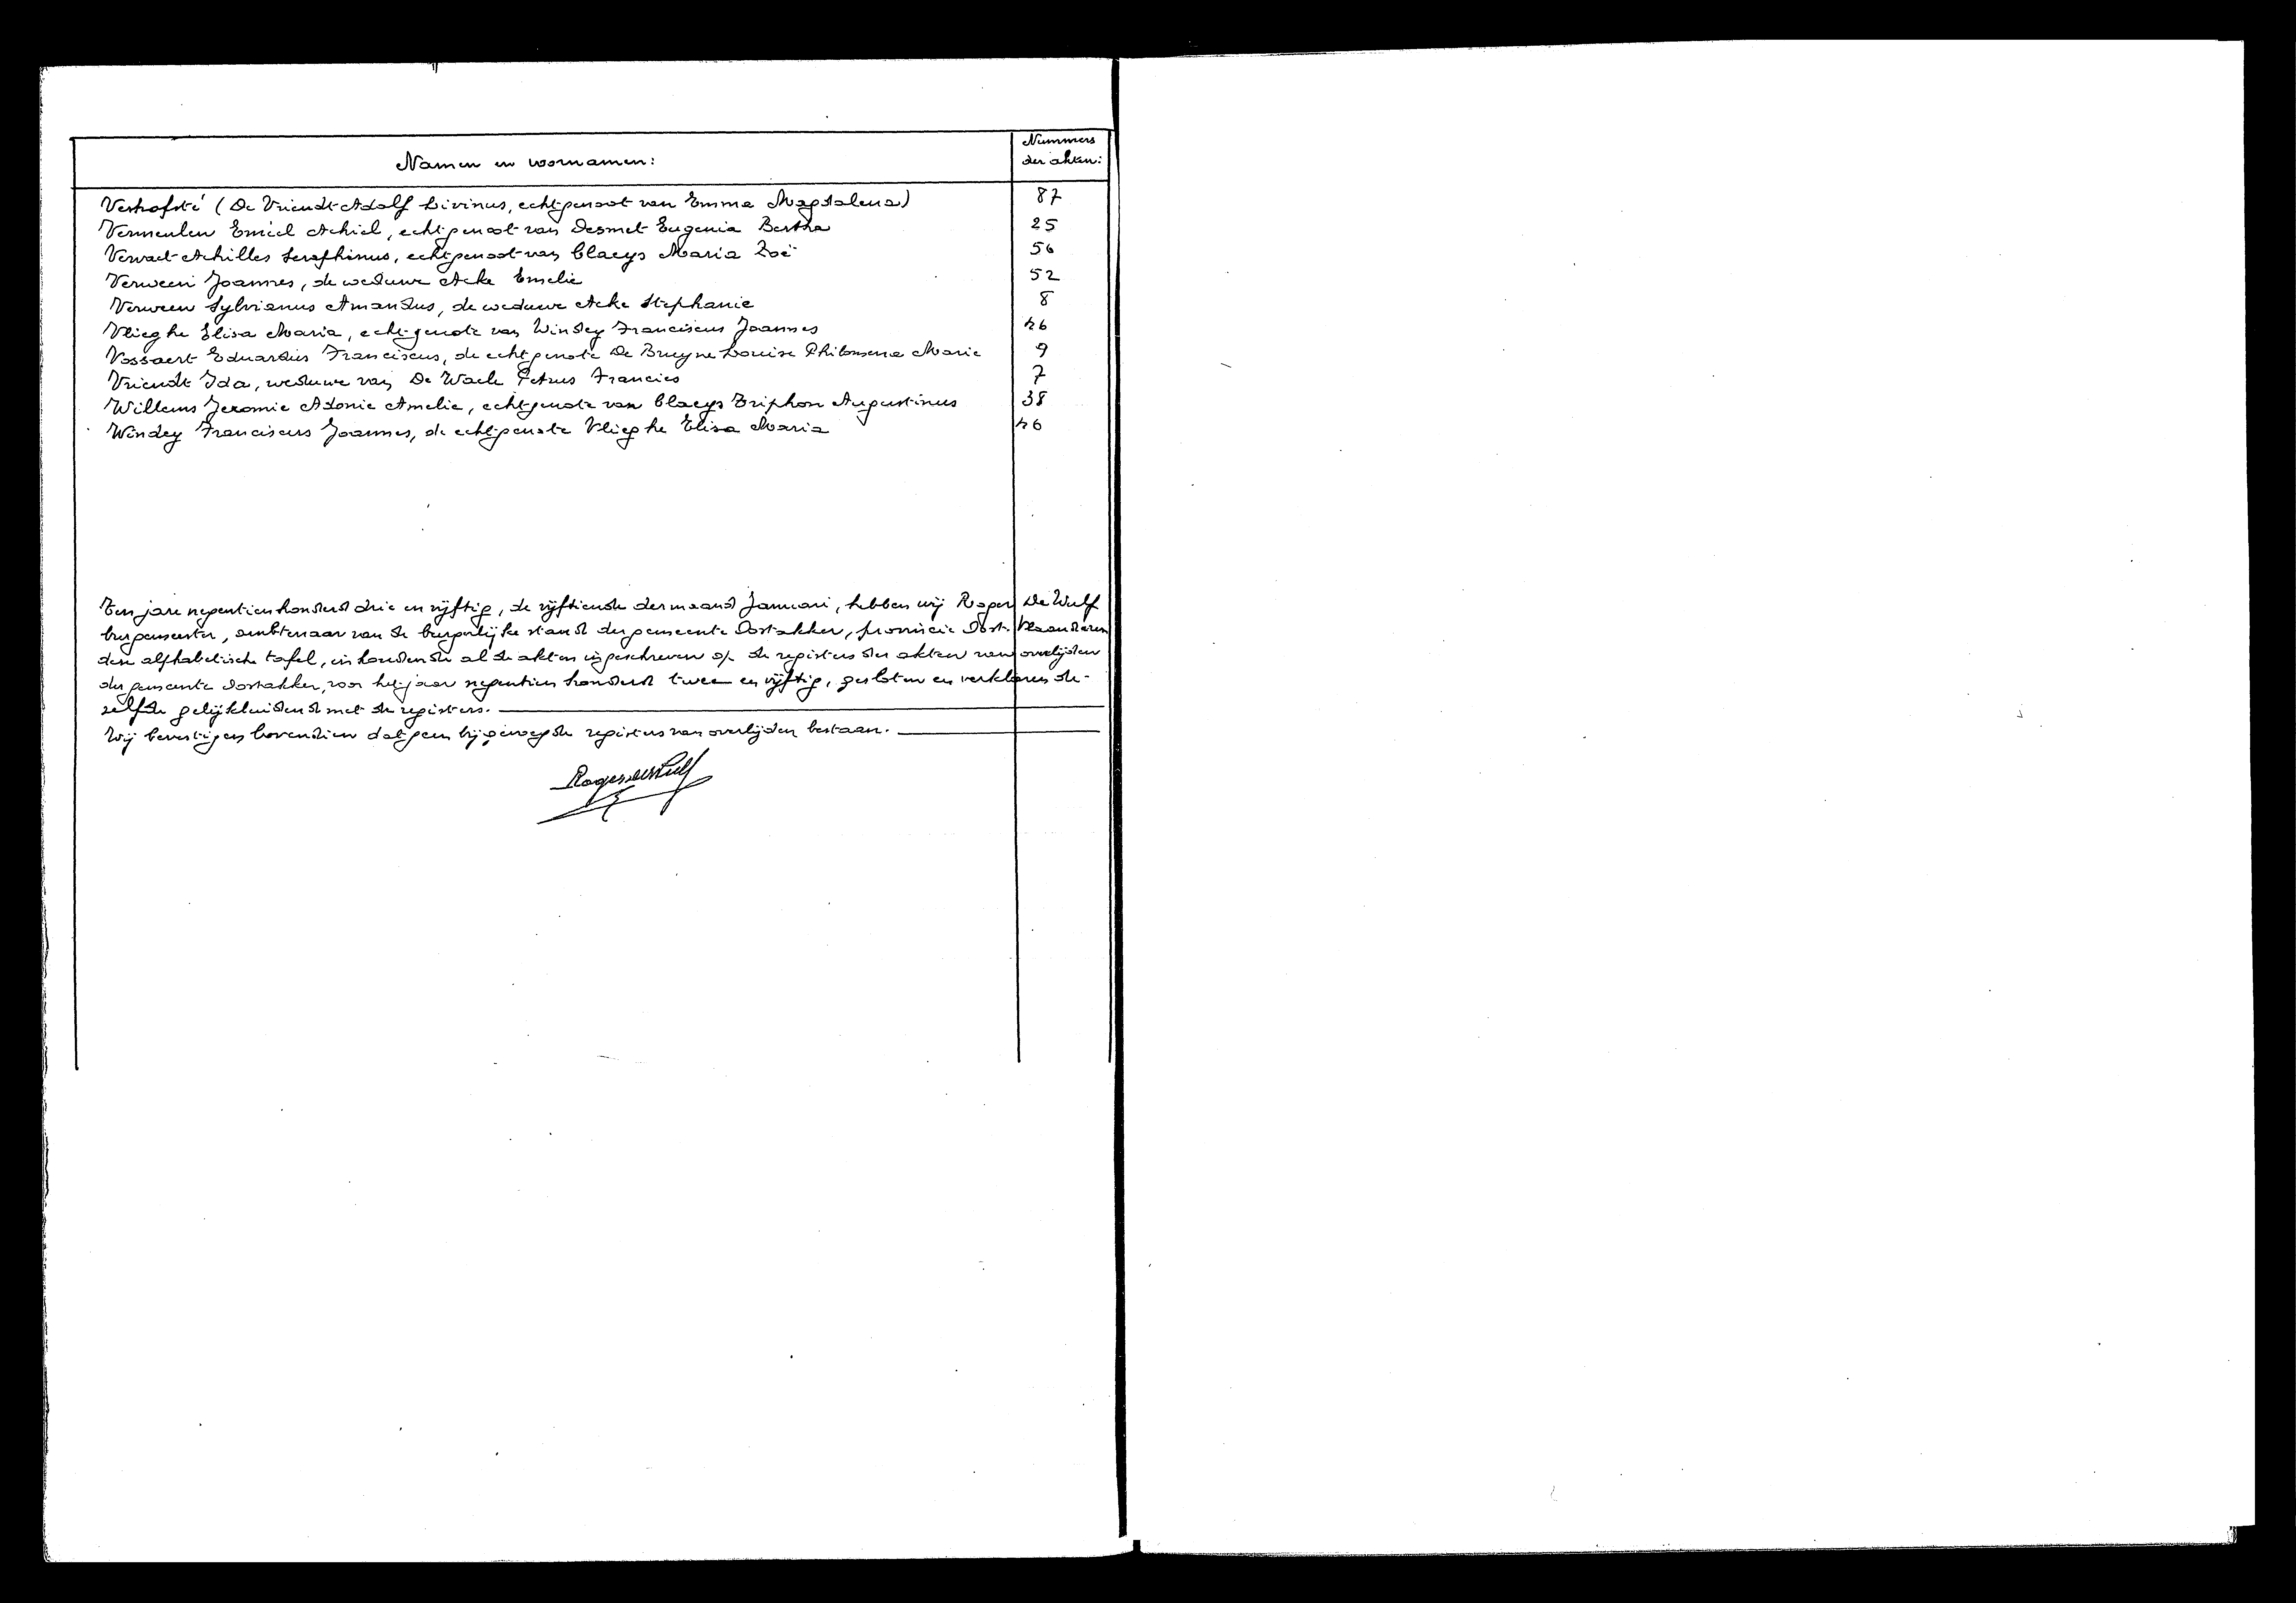 Namen en voornamen:
Nummers
der akten:
Verhofsté (De Vriendt Adolf Livinus, echtgenoot van Emma Magdalena) 87
Vermeulen Emiel Achiel, echtgenoot van Desmet Eugenia Bertha 25
Vervaet Achilles Seraphinus, echtgenoot van Claeys Maria Zoë 56
Verween Joannes, de weduwe Acke Emelie 52
Verween Sylvianus Amandus, de weduwe Acke Stephanie 8
Vlieghe Elisa Maria, echtgenote van Windey Franciscus Joannes 46
Vossaert Eduardus Franciscus, de echtgenote De Bruyne Louise Philomena Marie 9
Vriendt Ida, weduwe van De Waele Petrus Francies 7
Willems Jeromie Adonie Amelie, echtgenote van Claeys Triphon Augustinus 38
Windey Franciscus Joannes, de echtgenote Vlieghe Elisa Maria 46
Ten jare negentienhonderd drie en vijftig, de vijftiende der maand Januari, hebben wij Roger De Wulf
burgemeester, ambtenaar van de burgerlijke stand der gemeente Oostakker, provincie Oost-Vlaanderen
deze alphabetische tafel, inhoudende al de akten ingeschreven op de registers der akten van overlijden
der gemeente Oostakker, voor het jaar negentien honderd twee en vijftig, gesloten en verklaren de-
zelfde gelijkluidend met de registers.
Wij bevestigen bovendien dat geen bijgevoegde registers van overlijden bestaan.
Roger De Wulf